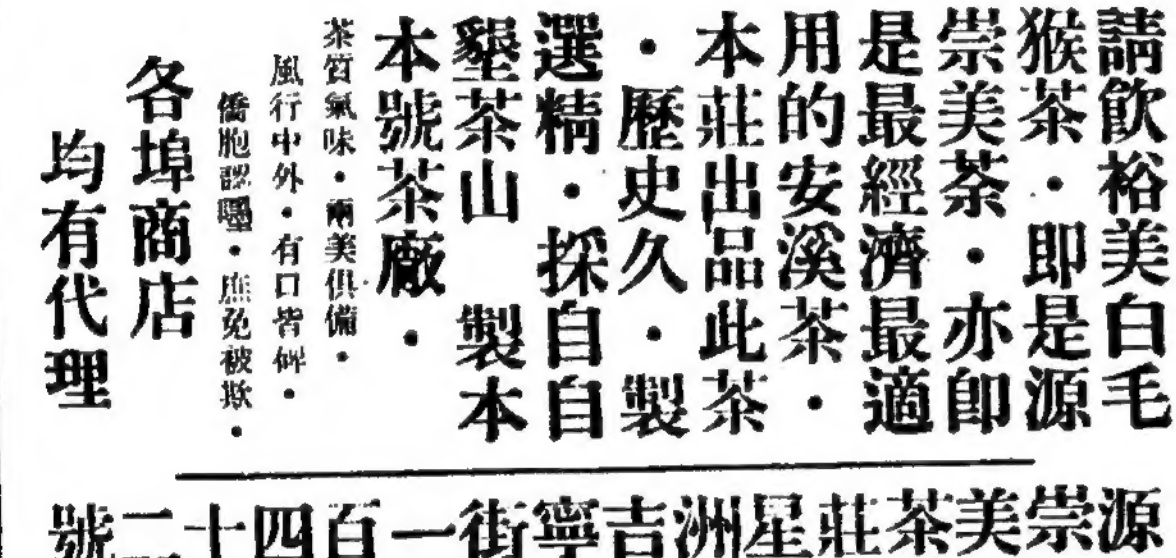 請飲裕美白毛
猴茶・即是源
崇美茶・亦即
是最經濟最適
用的安溪茶・
本莊出品此茶
・歷史久・製
選精・採自自
墾茶山 製本
本號茶廠・
茶質氣味・兩美俱備・
風行中外・有口皆碑・
僑胞認嘜・庶免被欺・
各埠商店
均有代理
源崇美茶莊星洲吉寧街一百四十二號